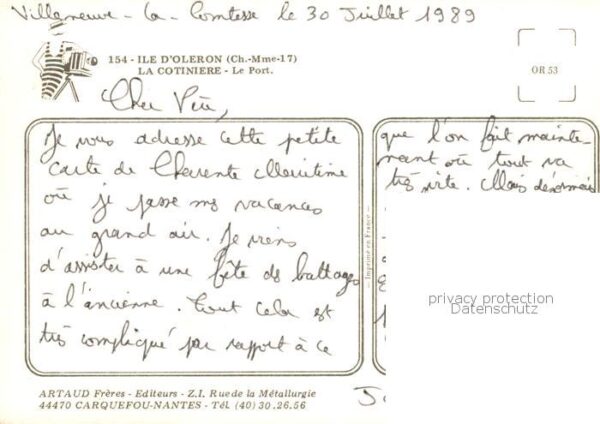 Villeneuve - la - Comtesse le 30 Juillet 1989
154 - ILE D'OLERON (Ch.-Mme-17)
LA COTINIERE - Le Port.
OR 53
Cher
Je vous adresse cette petite
carte de Charente Maritime
où je passe mes vacances
au grand air. Je viens
d'assister à une fête de battages
à l'ancienne. Tout cela est
très compliqué par rapport à ce
Imprimé en France
que l'on fait mainte-
nant où tout va
très vite. Mais désormais
privacy protection
Datenschutz
ARTAUD Frères - Editeurs - Z.I. Rue de la Métallurgie
44470 CARQUEFOU-NANTES - Tél. (40) 30.26.56